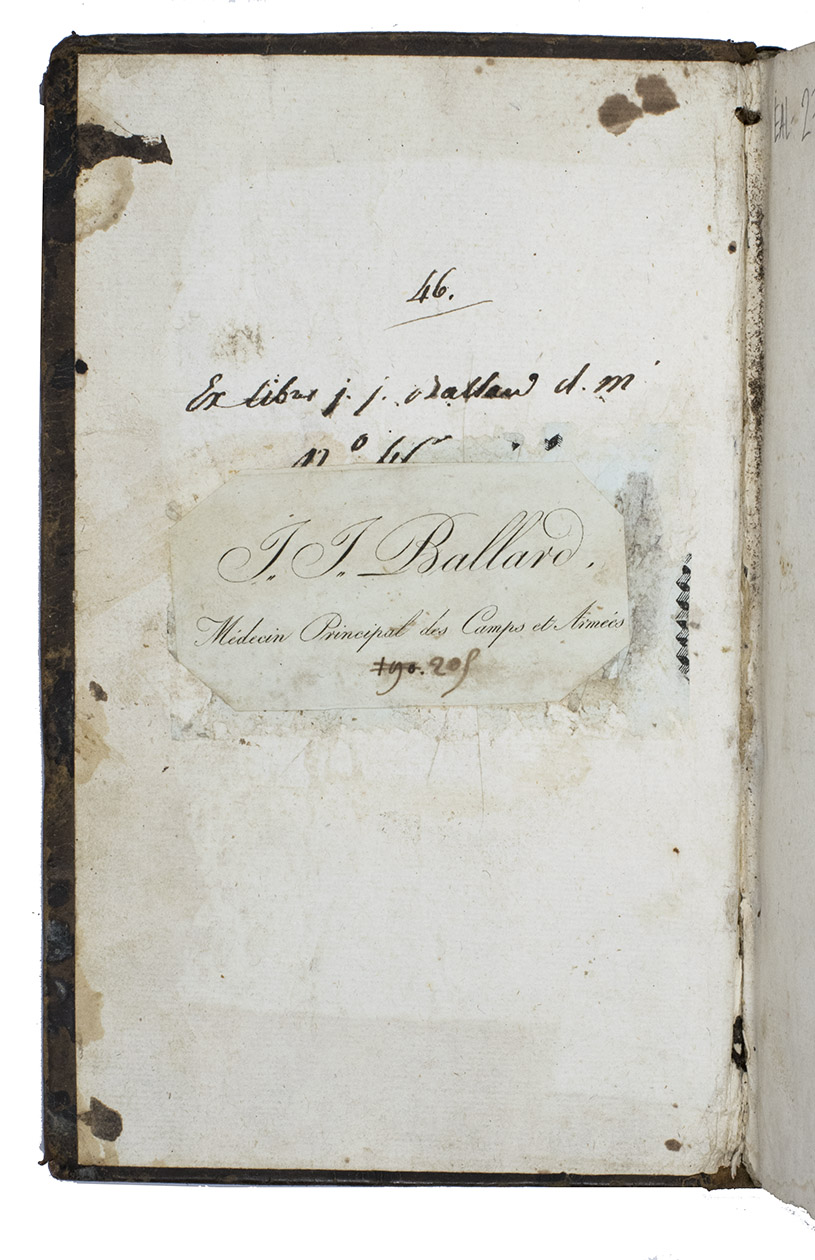 46.
Ex libris j. j. Ballard d. m
n.º 46
J. J. Ballard.
Médecin Principal des Camps et Armées
190. 205
EAL